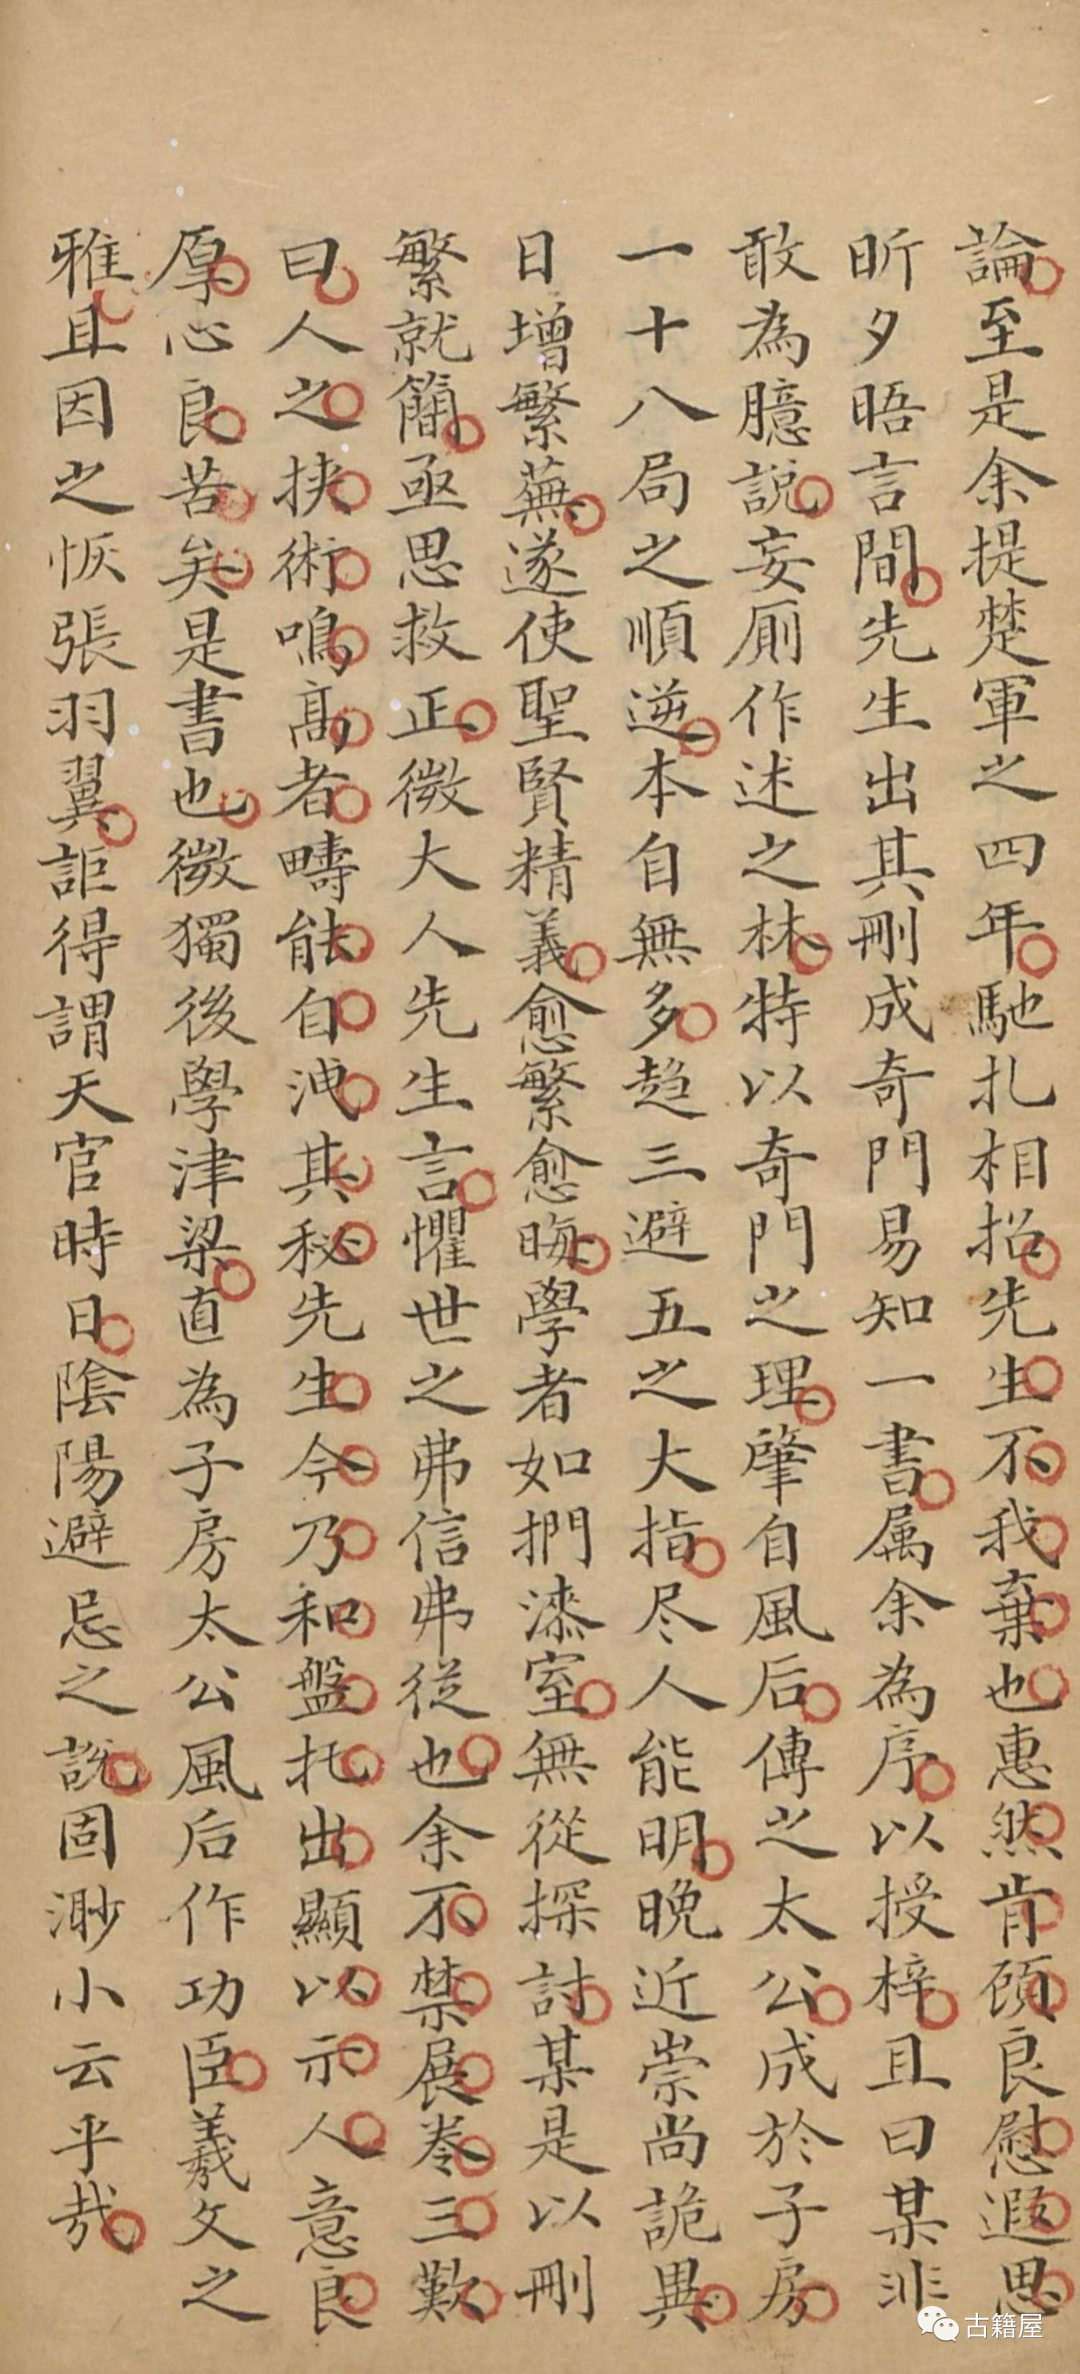 論至是余提楚軍之四年馳扎相招先生不我棄也惠然肯顧良慰遐思
昕夕晤言間先生出其刪成奇門易知一書属余為序以授梓且曰某非
敢為臆說妄厠作述之林特以奇門之理肇自風后傳之太公成於子房
一十八局之順逆本自無多趋三避五之大指尽人能明晚近崇尚詭異
日增繁蕪遂使聖賢精義愈繁愈晦學者如捫漆室無從探討某是以刪
繁就簡亟思救正微大人先生言懼世之弗信弗從也余不禁展卷三歎
曰人之挟術鳴高者疇能自洩其秘先生今乃和盤托出顯以示人意良
厚心良苦矣是書也微獨後學津梁直為子房太公風后作功臣羲文之
雅且因之恢張羽翼詎得謂天官時日陰陽避忌之說固渺小云乎哉
古籍屋